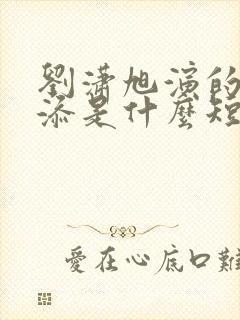 劉瀟旭演的
添是什麼短
愛在心底口難